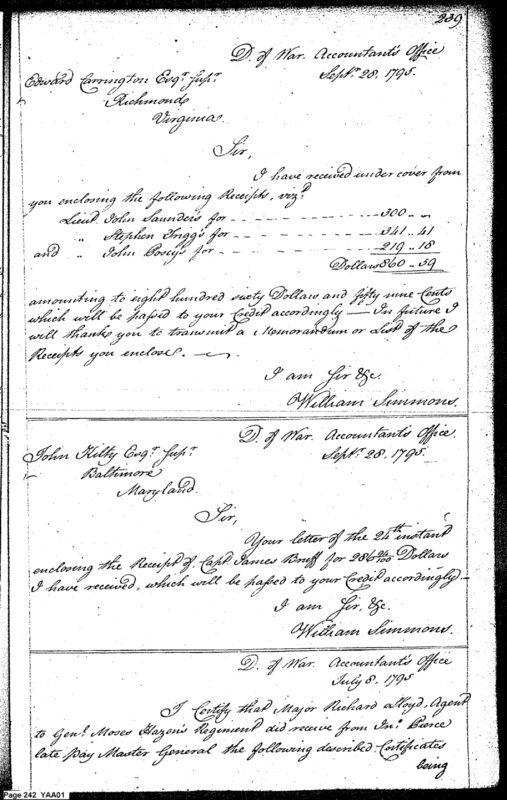 239
D. of War. Accountant's Office
Sept.r 28. 1795.
Edward Carrington Esq.r Sup.r
Richmond
Virginia.
Sir,
I have received under cover from
you enclosing the following Receipts, viz.t
Lieut. John Saunders's for - - - - - - 300 " "
" Stephen Trigg's for - - - - - - 341 .. 41
and " John Posey's for - - - - - - 219 .. 18
Dollars 860 .. 59
amounting to eight hundred sixty Dollars and fifty nine Cents
which will be passed to your Credit accordingly — In future I
will thank you to transmit a Memorandum or List of the
Receipts you enclose. —
I am Sir &c.
William Simmons.
D. of War. Accountant's Office.
Sept.r 28. 1795.
John Kilty Esq.r Sup.r
Baltimore
Maryland.
Sir,
Your letter of the 24th instant
enclosing the Receipt of Capt James Bruff for Dollars
I have received, which will be passed to your Credit accordingly. —
I am Sir, &c.
William Simmons.
D. of War. Accountant's Office
July 8. 1795
I Certify that Major Richard Lloyd, Agent
to Gen.l Moses Hazen's Regiment did receive from Jn.o Pierce
late Pay Master General the following described Certificates
being
Page 242 YAA01